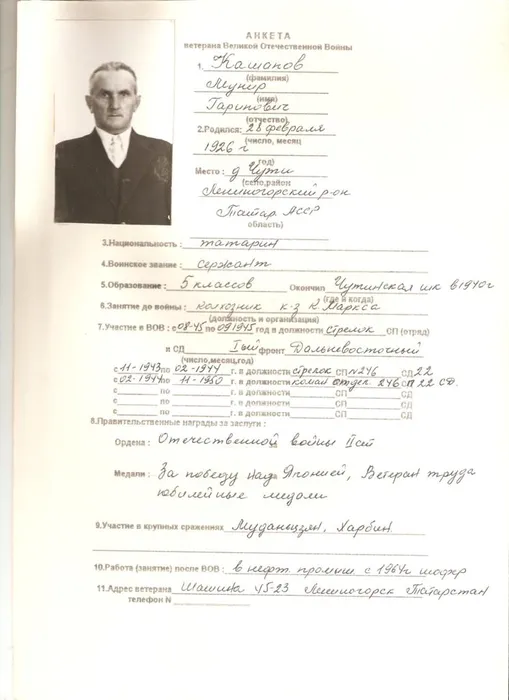 АНКЕТА
ветерана Великой Отечественной Войны
1. Кашапов
(фамилия)
Мунир
(имя)
Гарипович
(отчество),
2.Родился: 28 февраля
(число, месяц
1926 г
год)
Место : д Чути
(село,район
Лениногорский р-он
Татар АССР
область)
3.Национальность : татарин
4.Воинское звание : Сержант
5.Образование : 5 классов Окончил Чутинская шк в 1940г
(где и когда)
6.Занятие до войны : колхозник к-з К Маркса
(должность и организация)
7.Участие в ВОВ : с 08-45 по 09 1945 год в должности Стрелок СП (отряд)
в СД Iый фронт Дальневосточный
(число,месяц,год)
с 11-1943 по 02-1944 г. в должности стрелок СП N246 СД 22
с 02-1944 по 11-1950 г. в должности коман отдел 246 СП 22 СД.
с по г. в должности СП СД
с по г. в должности СП СД
8.Правительственные награды за заслуги :
Ордена : Отечественной войны II ст
Медали : За победу над Японией, Ветеран труда
юбилейные медали
9.Участие в крупных сражениях Муданьцзян, Харбин
10.Работа (занятие) после ВОВ : в нефт. промыш с 1964г шофер
11.Адрес ветерана Шашина 45-23 Лениногорск Татарстан
телефон N